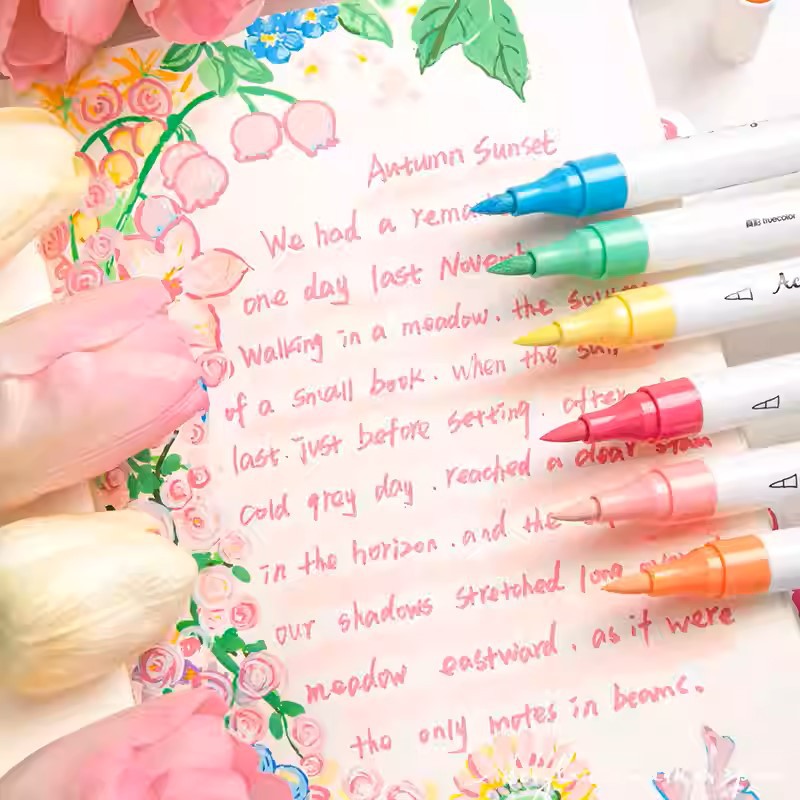 Autumn Sunset
We had a rema
one day last Novem
Walking in a meadow. the
of a small book. when the sun
last. just before setting. after
cold grey day. reached a clear
in the horizon. and the
our shadows stretched long
meadow eastward. as it were
the only motes in beams.
truecolor
Ac